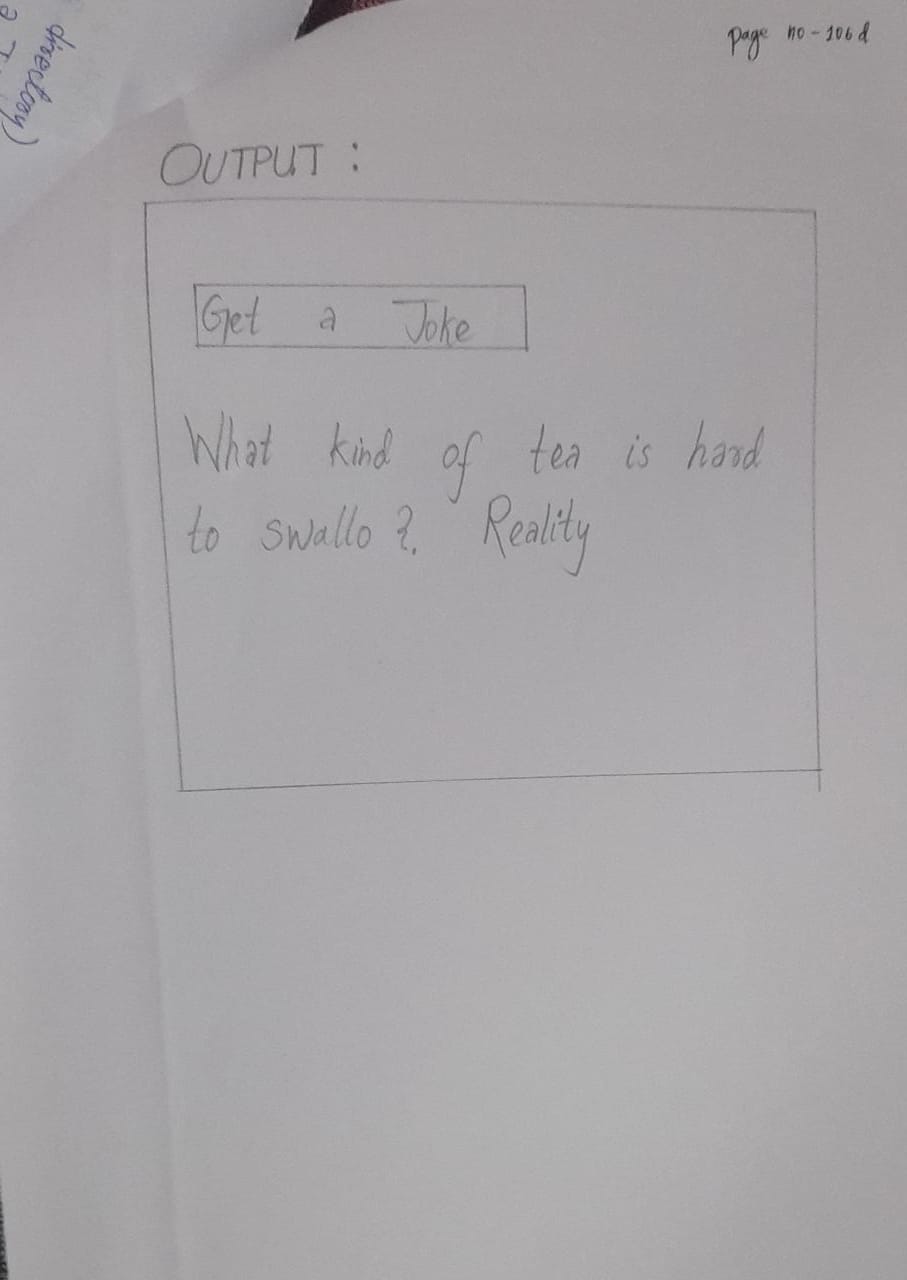 directory)
page no - 106 d
OUTPUT :
Get a Joke
What kind of tea is hard
to swallo ?. Reality